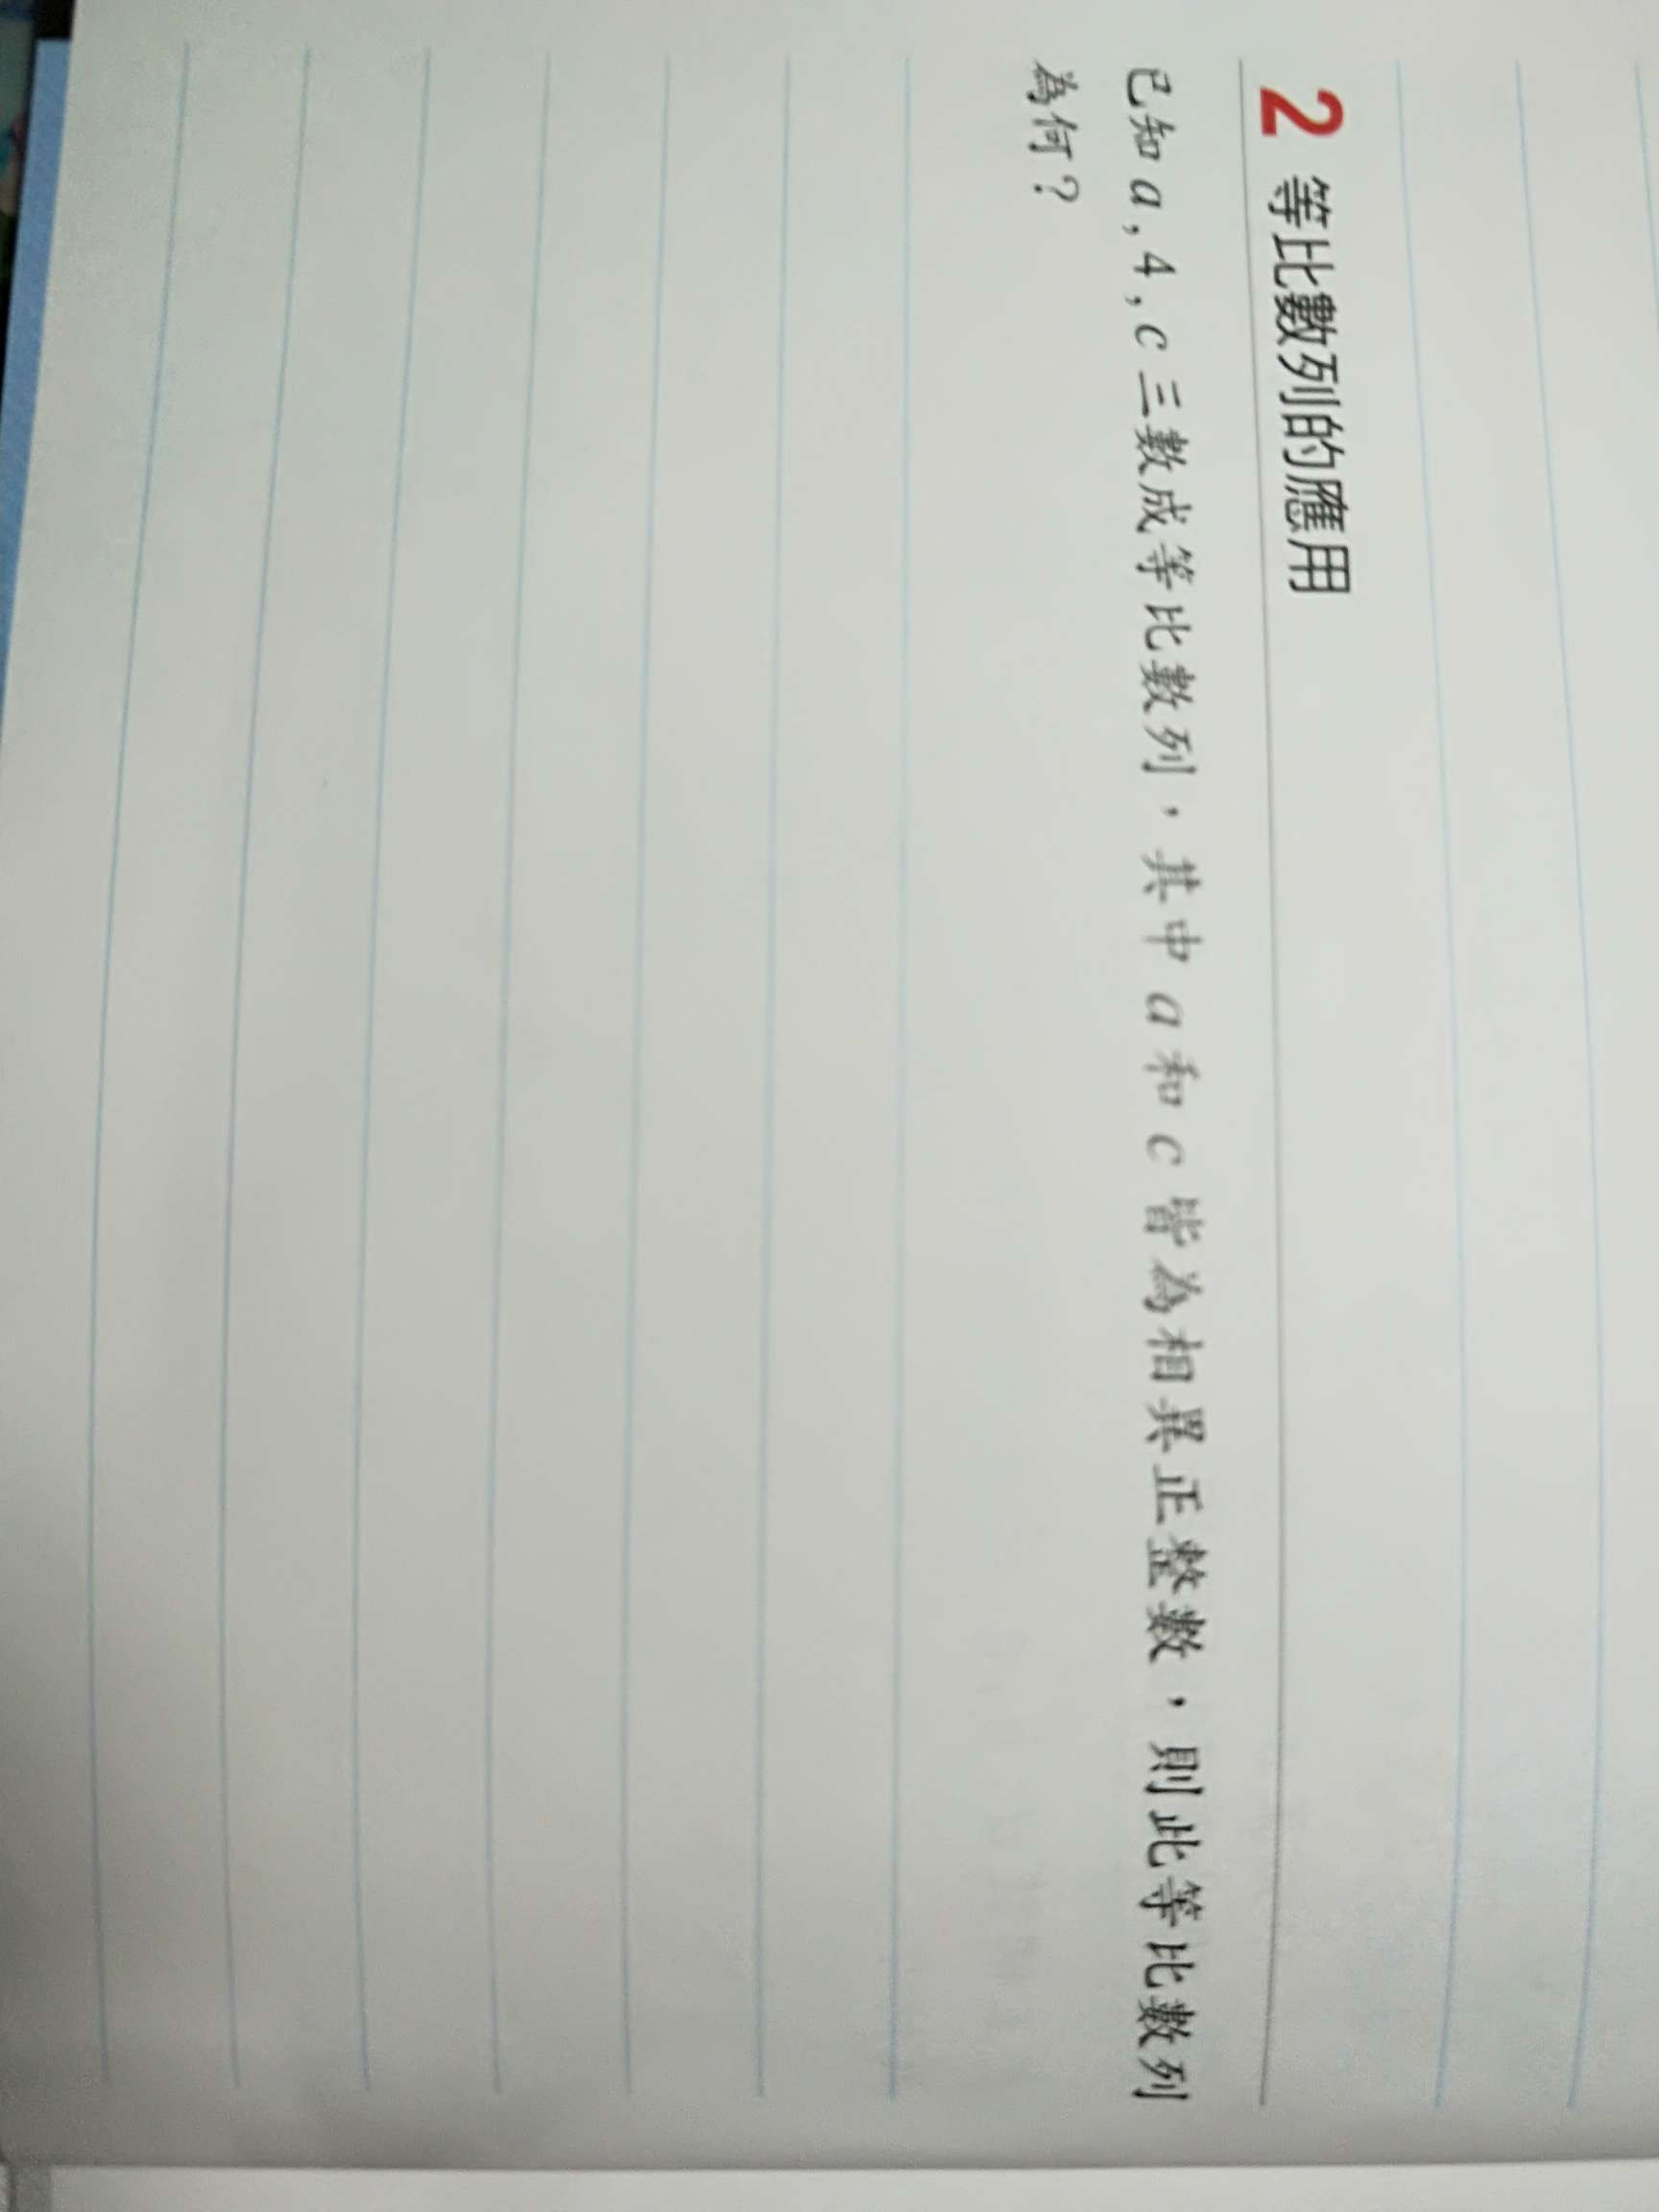 2 等比數列的應用
已知 a , 4 , c 三數成等比數列，其中 a 和 c 皆為相異正整數，則此等比數列
為何？